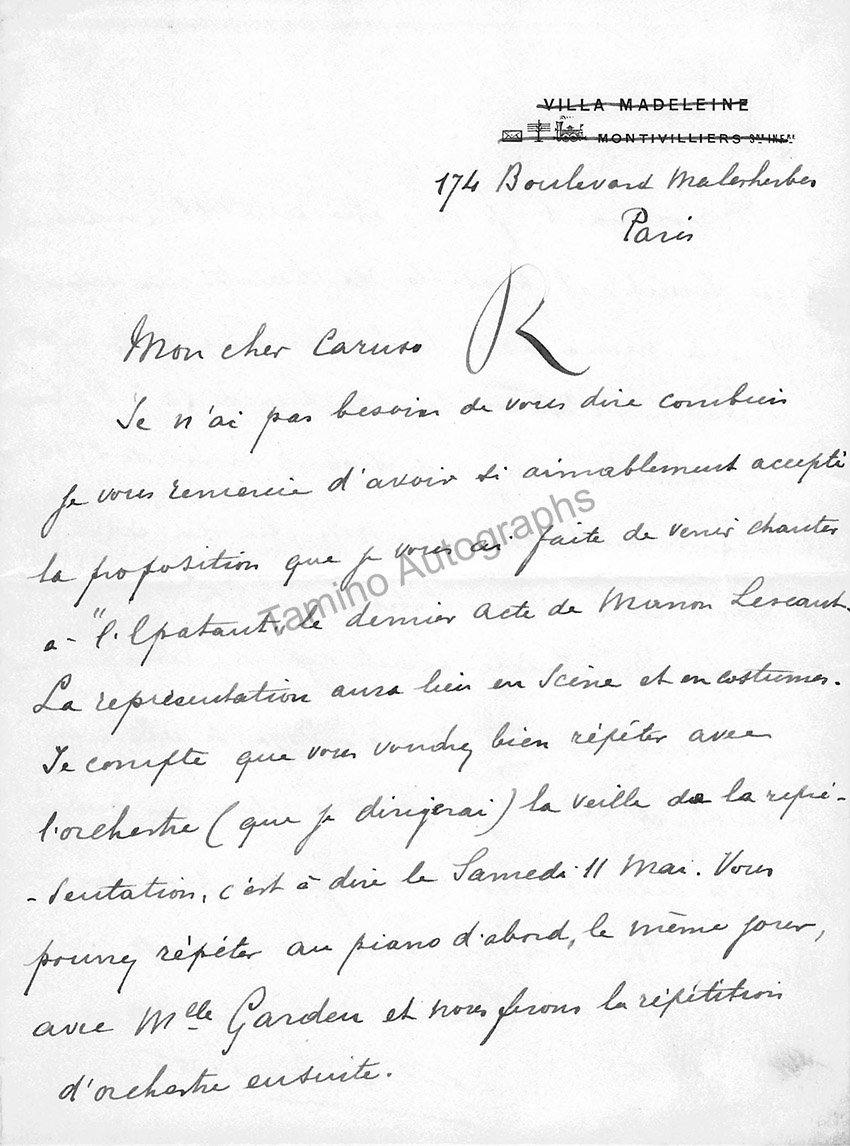 VILLA MADELEINE
MONTIVILLIERS Sne INFRE
174 Boulevard Malesherbes
Paris
R
Mon cher Caruso
Je n'ai pas besoin de vous dire combien
je vous remercie d'avoir si aimablement accepté
la proposition que je vous ai faite de venir chanter
à "l'Epatant" le dernier acte de Manon Lescaut.
La représentation aura lieu en Scène et en costumes.
Je compte que vous voudrez bien répéter avec
l'orchestre (que je dirigerai) la veille de la repré-
-sentation, c'est à dire le Samedi 11 Mai. Vous
pourrez répéter au piano d'abord, le même jour,
avec Mlle Garden et nous ferons la répétition
d'orchestre ensuite.
Tamino Autographs